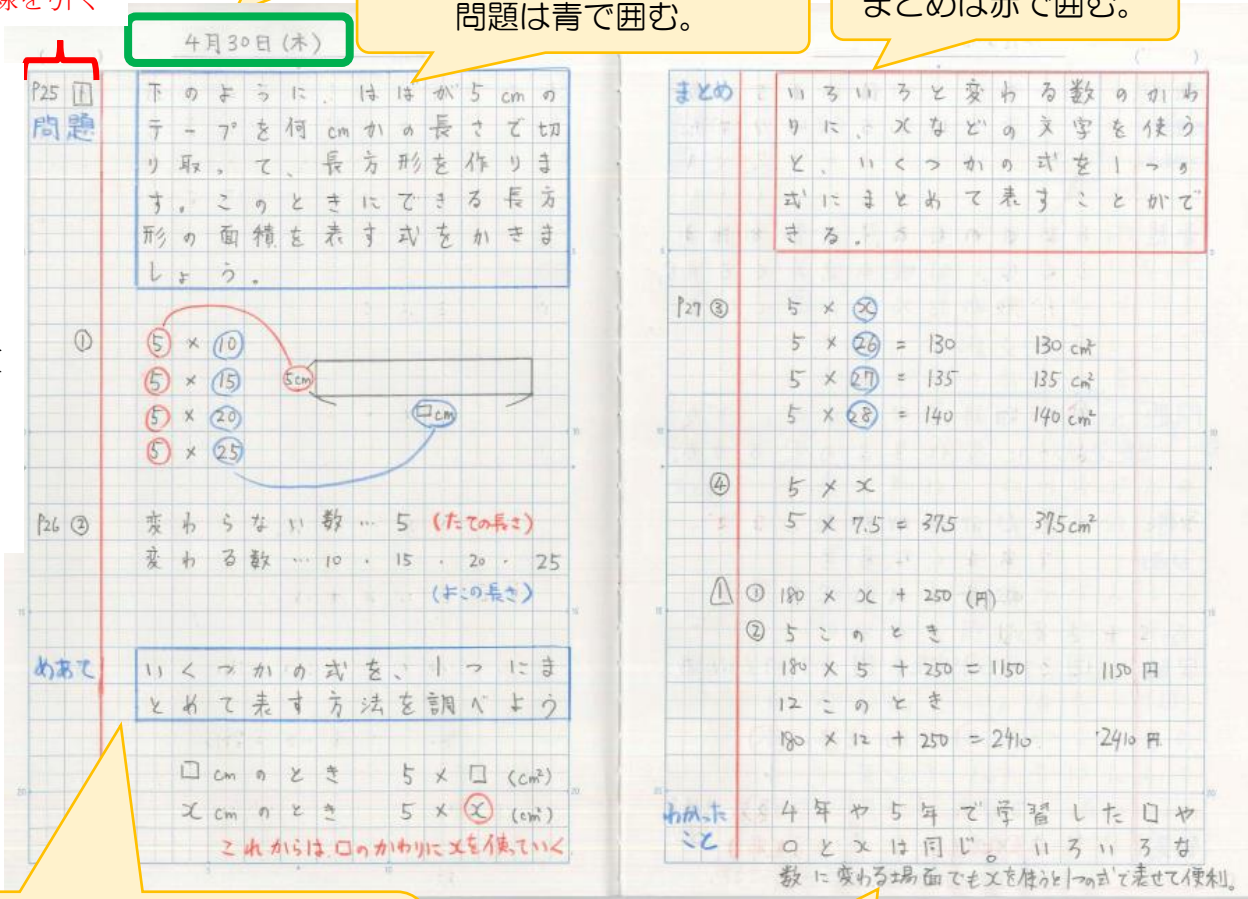 線を引く
問題は青で囲む。
まとめは赤で囲む。
4月30日(木)
P25 下
問題
下のように、はばが5cmの
テープを何cmかの長さで切
り取って、長方形を作りま
す。このときにできる長方
形の面積を表す式をかきま
しょう。
① 5×10
5×15
5×20
5×25
5cm
□cm
P26 ② 変わらない数…5(たての長さ)
変わる数…10・15・20・25
(よこの長さ)
めあて
いくつかの式を、1つにま
とめて表す方法を調べよう
□cmのとき 5×□(cm²)
xcmのとき 5×x(cm²)
これからは、□のかわりにxを使っていく
まとめ
いろいろと変わる数のかわ
りに、xなどの文字を使う
と、いくつかの式を1つの
式にまとめて表すことがで
きる。
P27 ③ 5×x
5×26=130 130cm²
5×27=135 135cm²
5×28=140 140cm²
④ 5×x
5×7.5=37.5 37.5cm²
1 ① 180×x+250(円)
② 5このとき
180×5+250=1150 1150円
12このとき
180×12+250=2410 2410円
わかった
こと
4年や5年で学習した□や
○とxは同じ。いろいろな
数に変わる場面でもxを使うと1つの式で表せて便利。